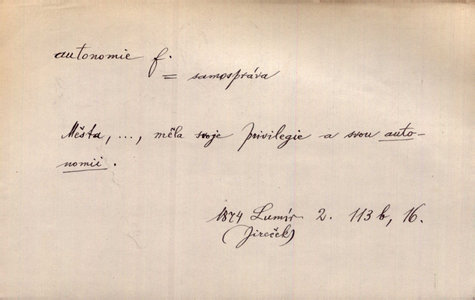 autonomie f.
= samospráva
Města, ..., měla svoje privilegie a svou auto-
nomii.
1874 Lumír 2. 113 b, 16.
(Jireček)